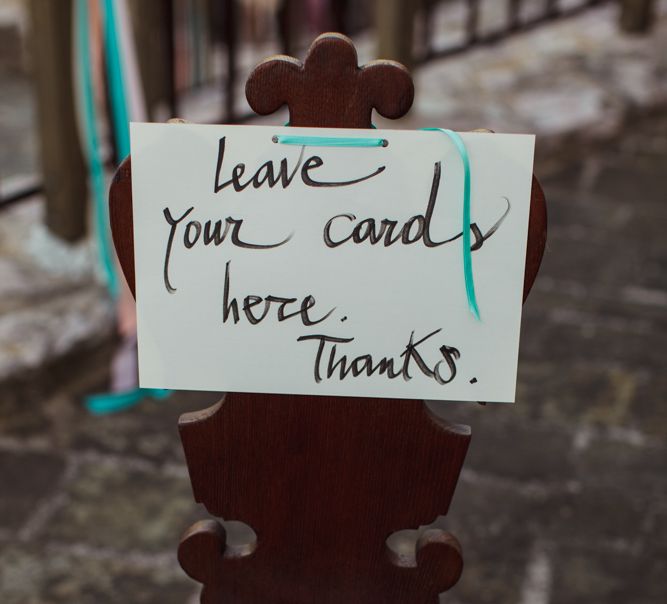 Leave
your cards
here.
Thanks.